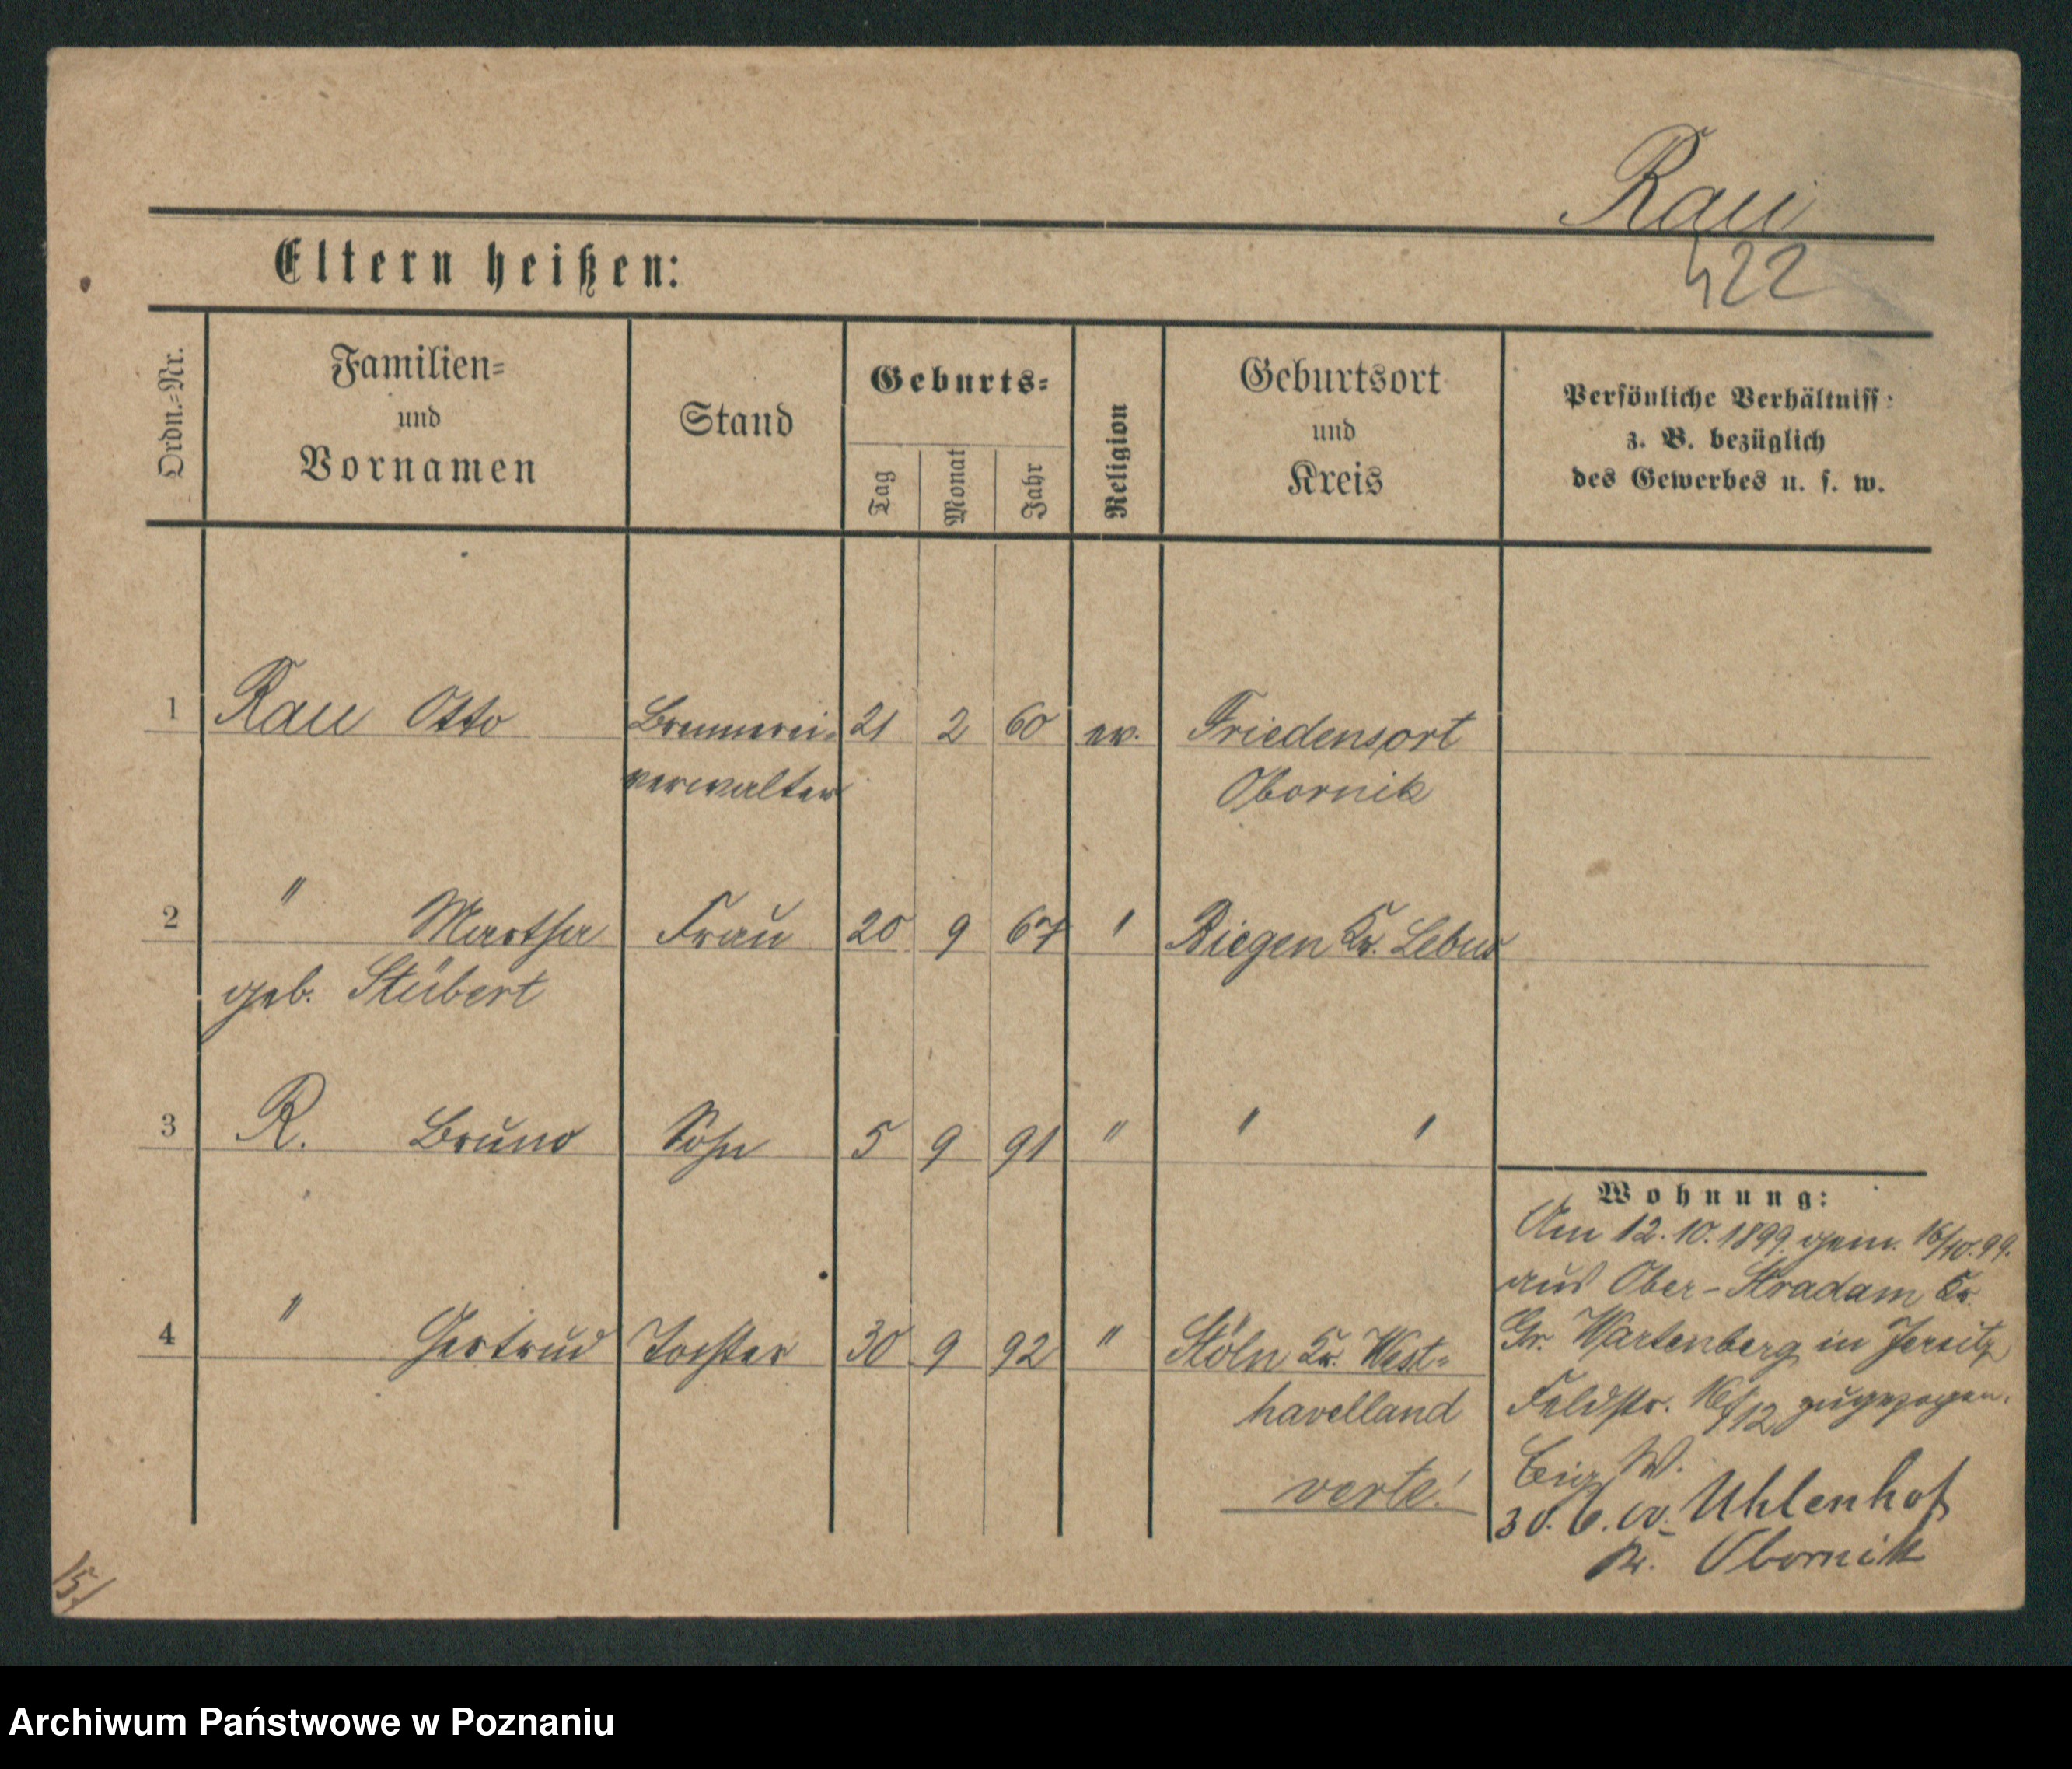 Rau
422
Eltern heißen:
Ordn.-Nr.
Familien-
und
Vornamen
Stand
Geburts-
Tag
Monat
Jahr
Religion
Geburtsort
und
Kreis
Persönliche Verhältniss:
z. B. bezüglich
des Gewerbes u. s. w.
1 Rau Otto Brennerei- 21 2 60 ev. Friedensort
verwalter Obornik
2 " Martha Frau 20 9 67 " Biegen Kr. Lebus
geb. Stübert
3 R. Bruno Sohn 5 9 91 " " "
4 " Gertrud Tochter 30 9 92 " Stöln Kr. West-
havelland
verte!
Wohnung:
Am 12.10.1899. gem. 16/10.99.
aus Ober-Stradam Kr.
Gr. Wartenberg in Jersitz
Feldstr. zugezogen.
W.
30.6.00. Uhlenhof
Kr. Obornik
151
Archiwum Państwowe w Poznaniu